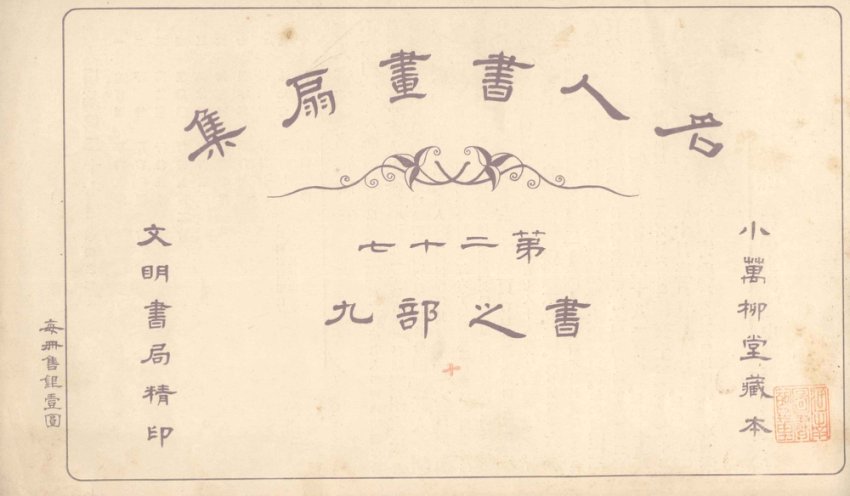 名人書畫扇集
第二十七
書之部九
小萬柳堂藏本
文明書局精印
每冊售銀壹圓
十